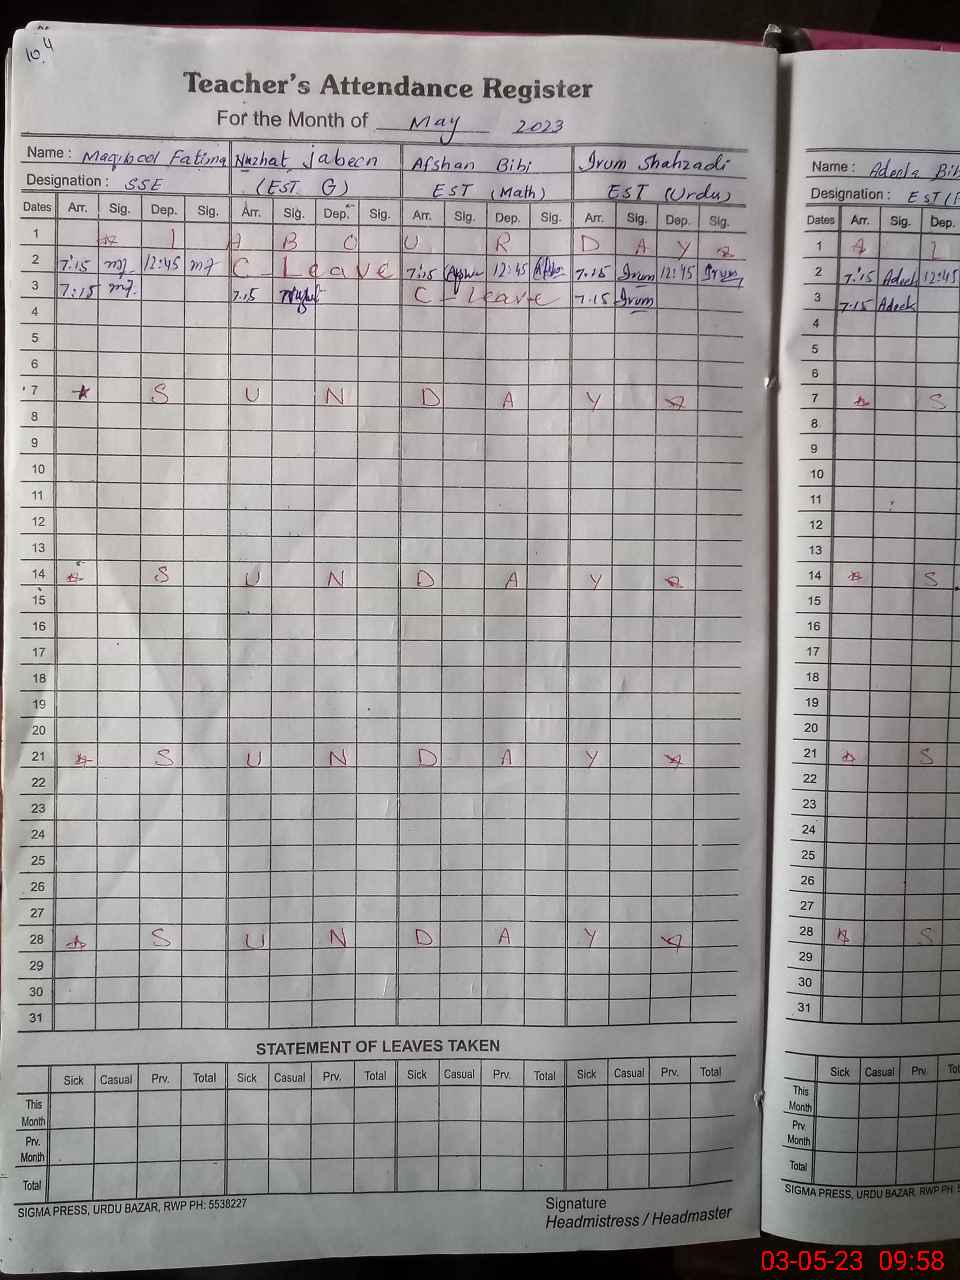 10.4
Teacher's Attendance Register
For the Month of May 2023
Name : Maqibool Fatima Nuzhat Jabeen Afshan Bibi Irum Shahzadi
Designation : SSE (EST G) EST (Math) EST (Urdu)
Dates Arr. Sig. Dep. Sig. Arr. Sig. Dep. Sig. Arr. Sig. Dep. Sig. Arr. Sig. Dep. Sig.
1 L A B O U R D A Y
2 7:15 mf 12:45 mf C - Leave 7:15 Afshan 12:45 Afshan 7.15 Irum 12:45 Irum
3 7:15 mf. 7.15 Nuzhat C - Leave 7.15 Irum
4
5
6
7 S U N D A Y
8
9
10
11
12
13
14 S U N D A Y
15
16
17
18
19
20
21 S U N D A Y
22
23
24
25
26
27
28 S U N D A Y
29
30
31
STATEMENT OF LEAVES TAKEN
Sick Casual Prv. Total Sick Casual Prv. Total Sick Casual Prv. Total Sick Casual Prv. Total
This Month
Prv. Month
Total
SIGMA PRESS, URDU BAZAR, RWP PH: 5538227
Signature
Headmistress / Headmaster
Name : Adeela Bib
Designation : EST (
Dates Arr. Sig. Dep.
1 L
2 7:15 Adeela 12:45
3 7.15 Adeela
4
5
6
7 S
8
9
10
11
12
13
14 S
15
16
17
18
19
20
21 S
22
23
24
25
26
27
28 S
29
30
31
Sick Casual Prv. Tot
This Month
Prv. Month
Total
SIGMA PRESS, URDU BAZAR, RWP PH: 5
03-05-23 09:58